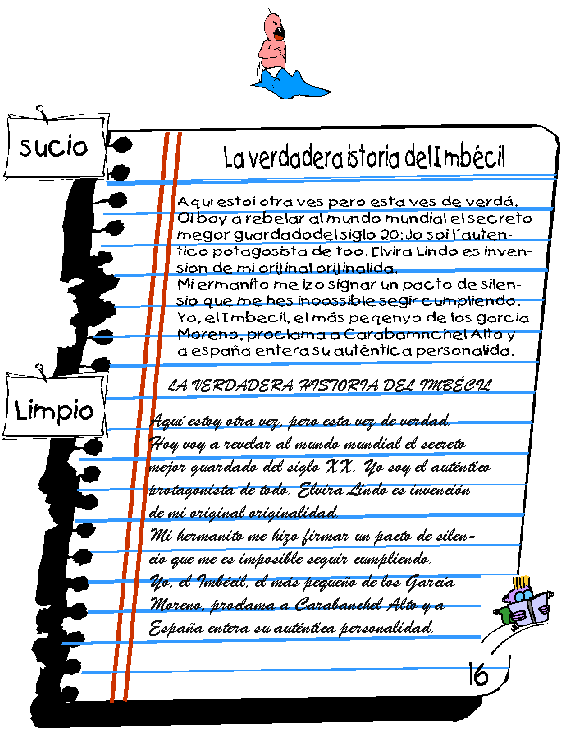 sucio
La verdadera istoria del Imbécil
Aqui estoi otra ves pero esta ves de verdá.
Oi boy a rebelar al mundo mundial el secreto
megor guardado del siglo 20: Jo soi l'auten-
tico potagosista de too. Elvira Lindo es inven-
sion de mi orijinal orijinalida.
Mi ermanito me izo signar un pacto de silen-
sio que me hes inoossible segir cumpliendo.
Yo, el Imbecil, el más peqenyo de los garcia
Moreno, proclama a Carabamnchel Alto y
a españa entera su auténtica personalida.
Limpio
LA VERDADERA HISTORIA DEL IMBÉCIL
Aquí estoy otra vez, pero esta vez de verdad.
Hoy voy a revelar al mundo mundial el secreto
mejor guardado del siglo XX. Yo soy el auténtico
protagonista de todo. Elvira Lindo es invención
de mi original originalidad.
Mi hermanito me hizo firmar un pacto de silen-
cio que me es imposible seguir cumpliendo.
Yo, el Imbécil, el más pequeño de los García
Moreno, proclama a Carabanchel Alto y a
España entera su auténtica personalidad.
16